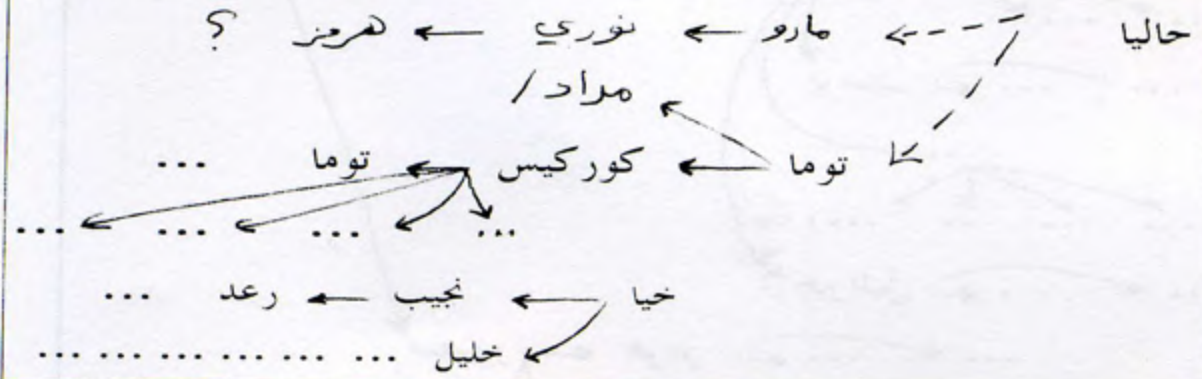 حاليا مارو نوري هرمز ؟
مراد /
توما كوركيس توما ...
... ... ... ...
خيا نجيب رعد ...
خليل ... ... ... ... ... ... ...